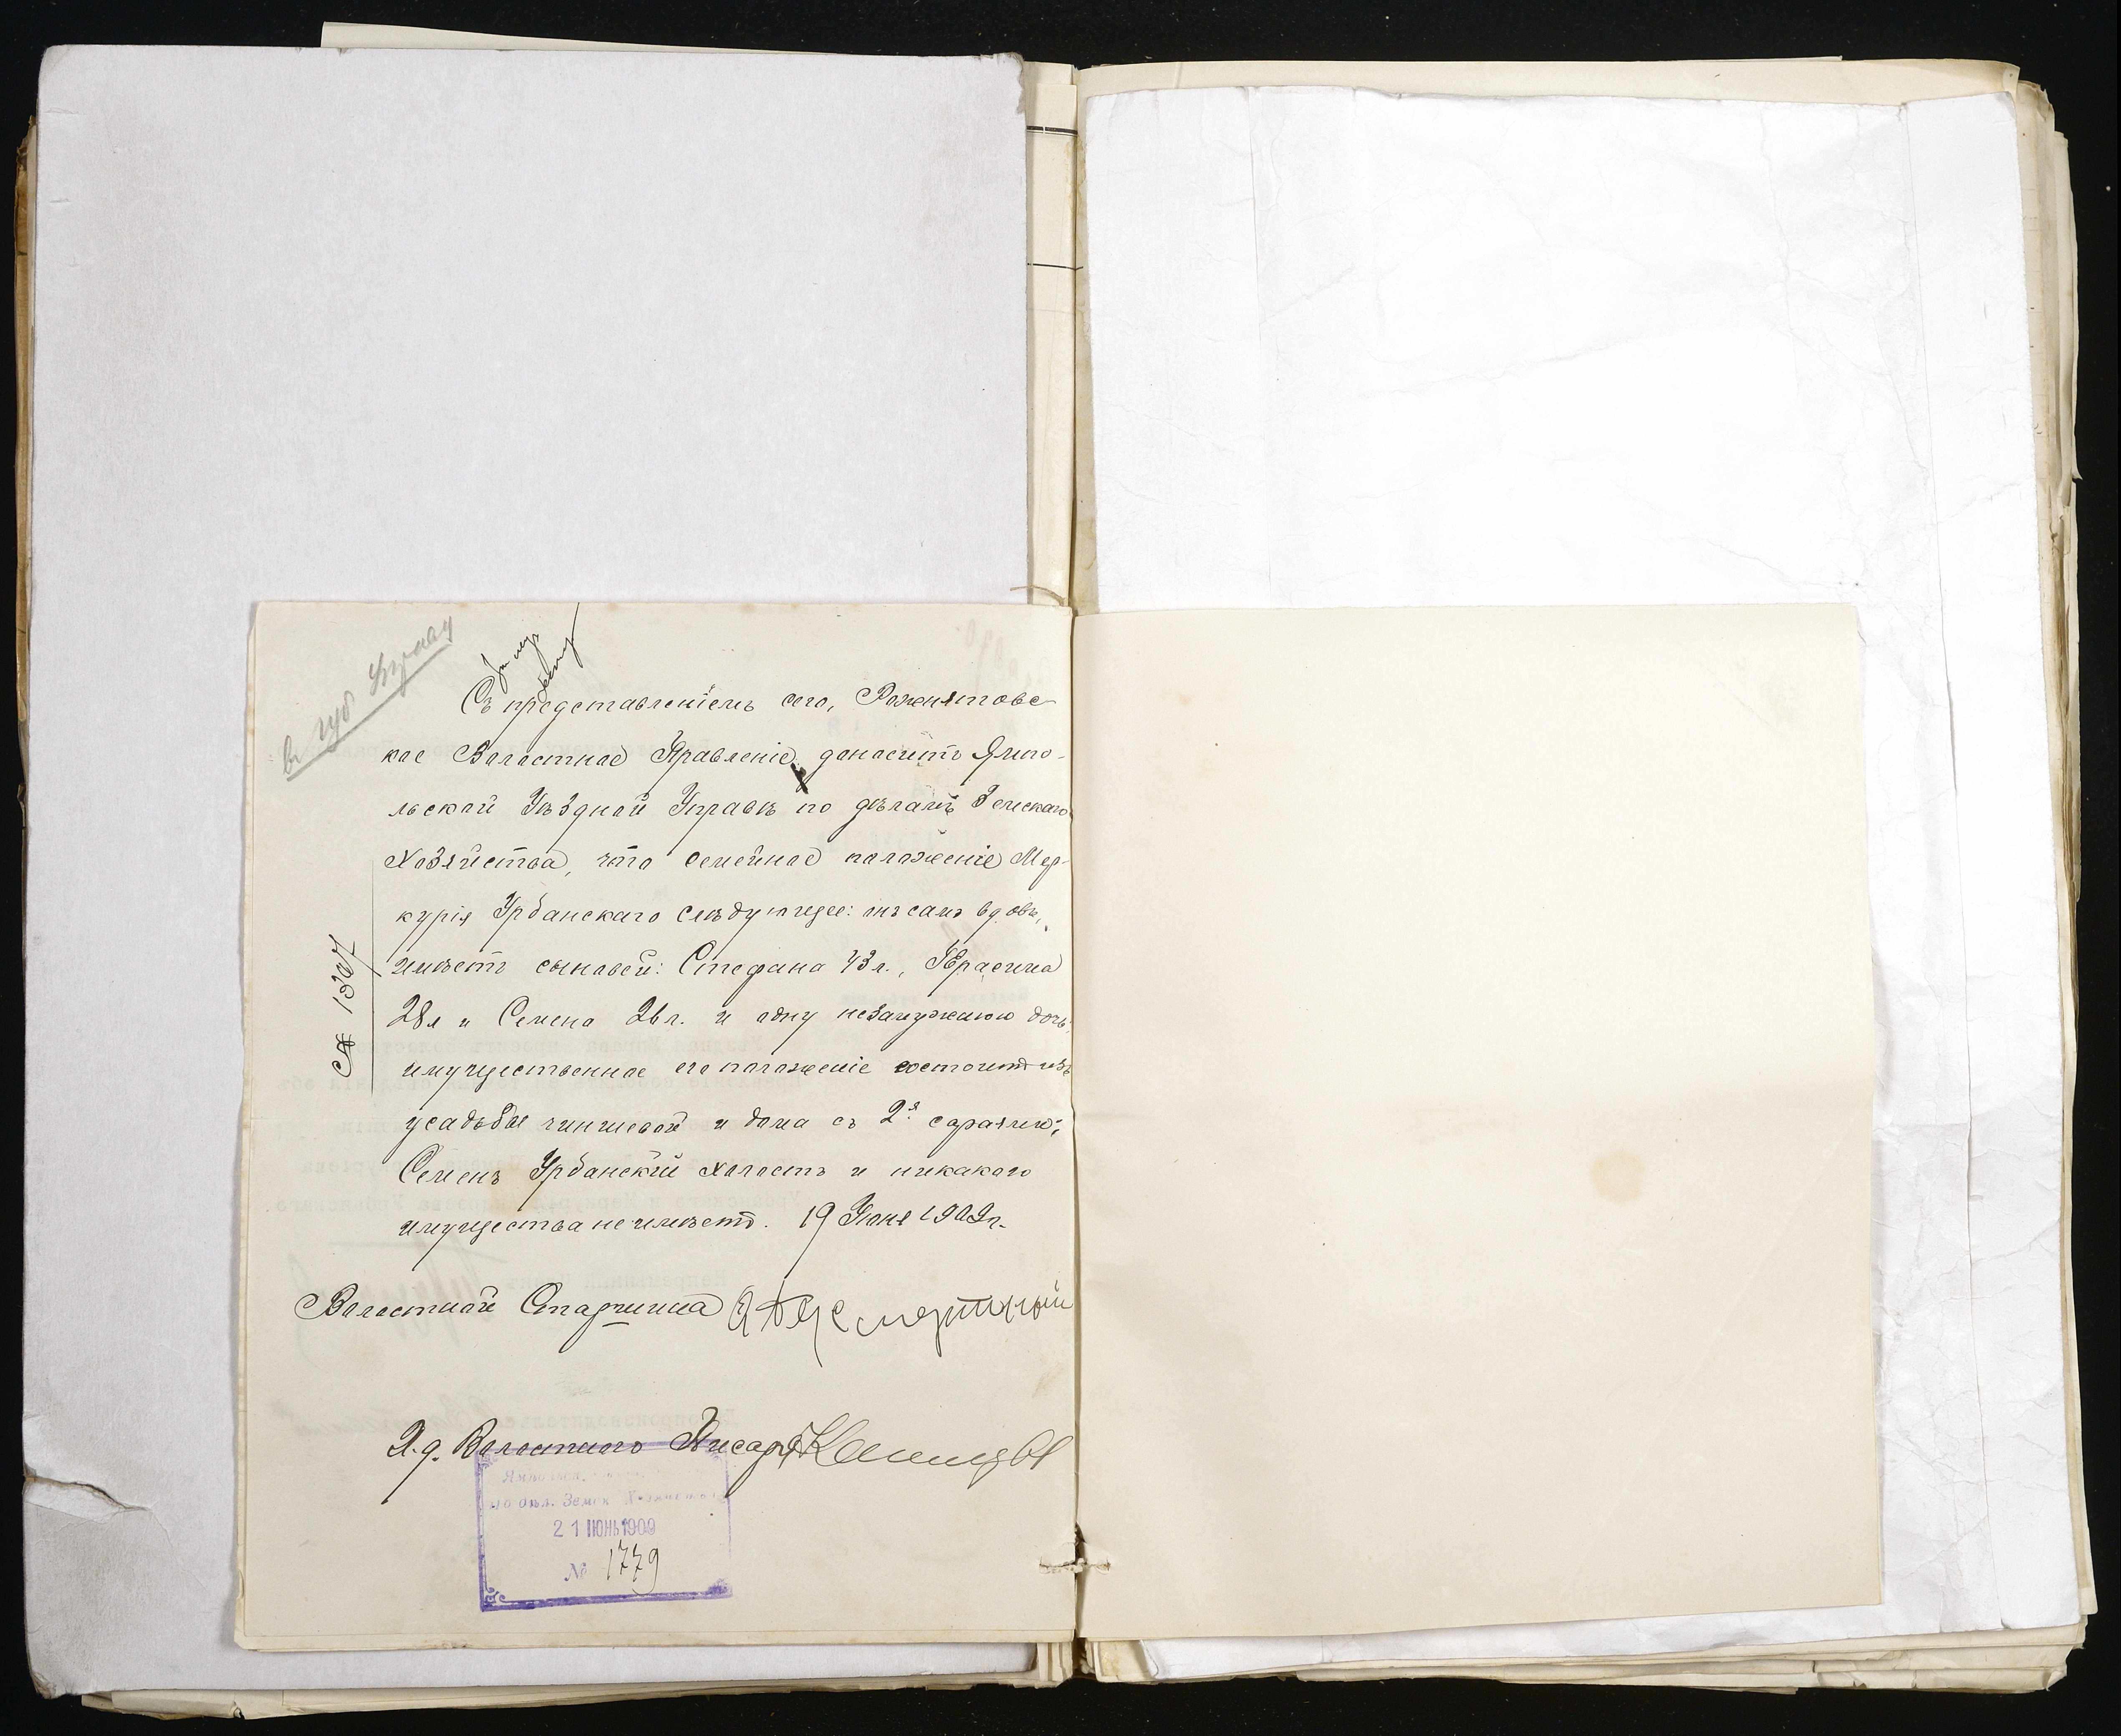 въ губ. Управу
Съ представленіемъ сего, Рожнятовс-
кое Волостное Правленіе доноситъ Ямпо-
льской Уѣздной Управѣ по дѣламъ Земскаго
Хозяйства, что семейное положеніе Мер-
курія Урбанскаго слѣдующее: онъ самъ вдовъ,
имѣетъ сыновей: Стефана 43 л., Герасима
28 л и Семена 26 л. и одну незамужнюю дочь;
имущественное его положеніе состоитъ изъ
усадьбы чиншевой и дома съ 2я сараями;
Семенъ Урбанскій холостъ и никакого
имущества не имѣетъ. 19 Іюня 1909 г.
№ 1307
Волостной Старшина
И. д. Волостного Писаря
по дѣл. Земск. Хозяйства
21 ІЮНЬ 1909
№ 1779